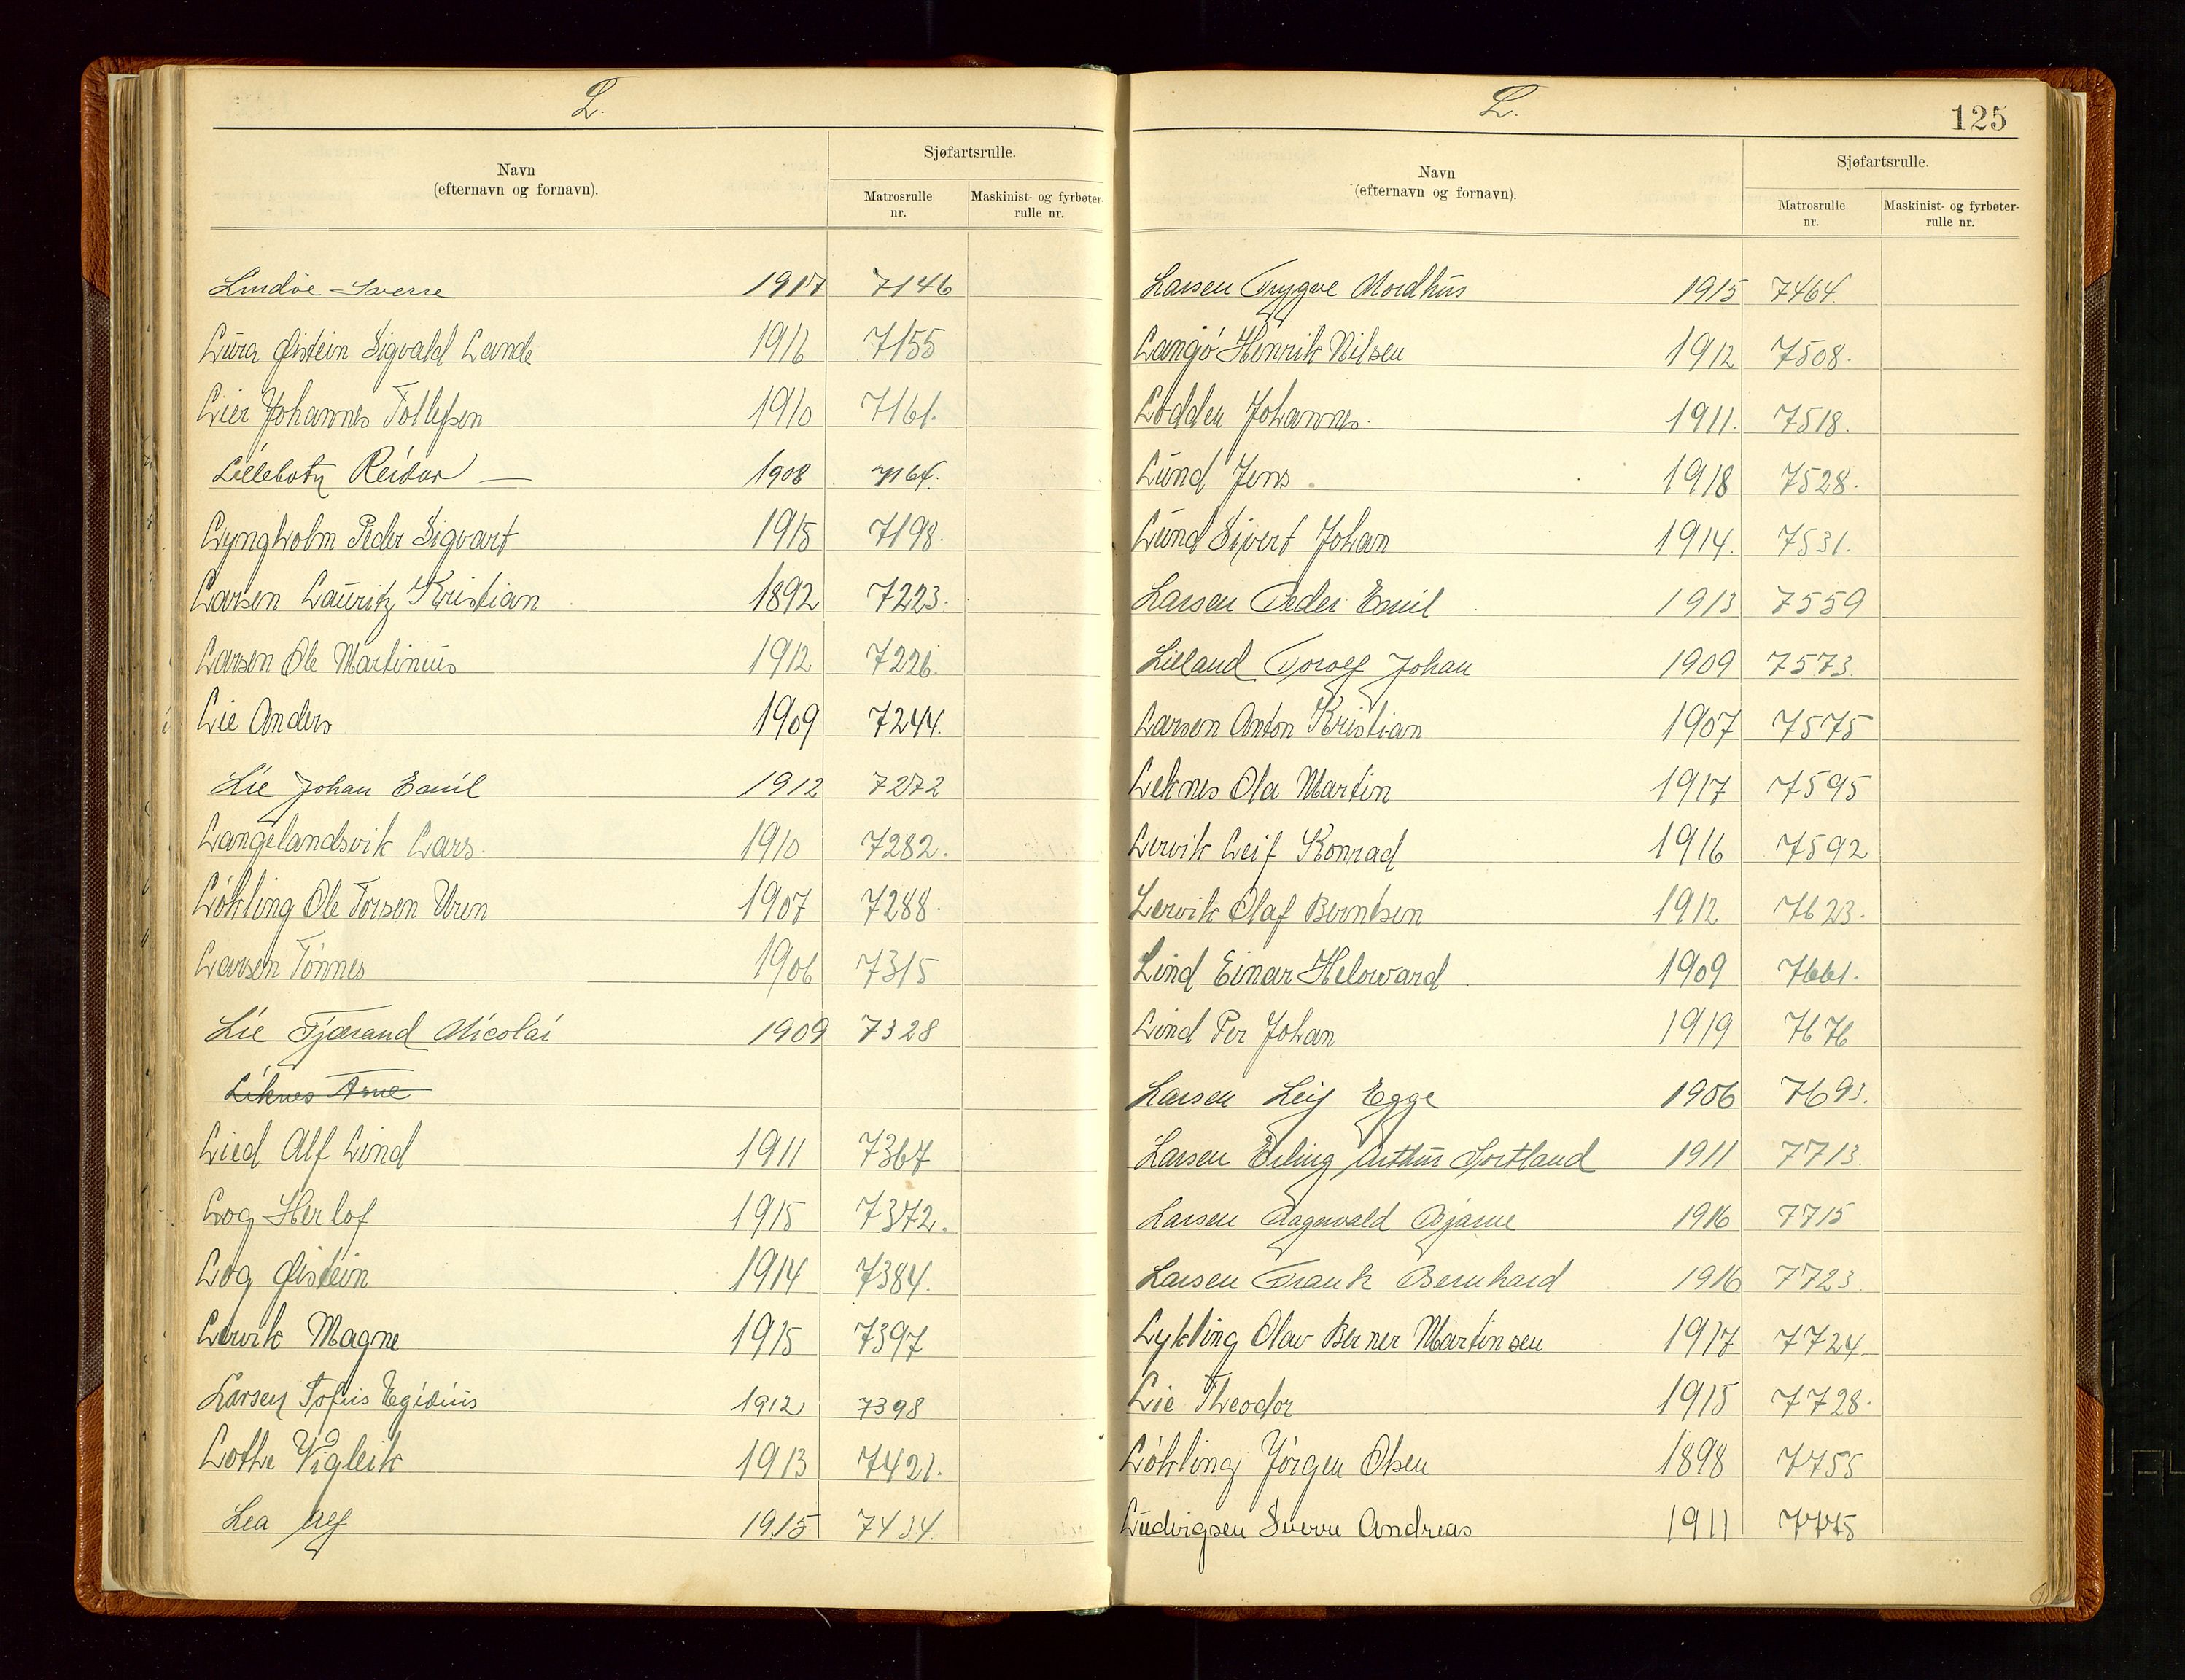 L.
Navn
(efternavn og fornavn).
Sjøfartsrulle.
Matrosrulle nr.
Maskinist- og fyrbøter-rulle nr.
Lindöe Sverre 1917 7146
Lura Øistein Sigvald Lande 1916 7155
Lier Johannes Tollefsen 1910 7161.
Reidar 1908 7164.
Lyngholm Peder Sigvart 1915 7198.
Larsen Lauritz Kristian 1892 7223.
Larsen Ole Martinius 1912 7226.
Lie Anders 1909 7244.
Lie Johan Emil 1912 7272
Langelandsvik Lars. 1910 7282.
Lökling Ole Torsen Uren 1907 7288.
Larsen Tönnes 1906 7315
Lie Tjærand Nicolai 1909 7328
Liknes Arne
Lied Alf Lind 1911 7367
Log Herlof 1915 7372.
Log Øistein 1914 7384.
Lervik Magne 1915 7397
Larsen Egidius 1912 7398
Lothe Vigleik 1913 7421.
Lea Alf 1915 7434.
L.
125
Navn
(efternavn og fornavn).
Sjøfartsrulle.
Matrosrulle nr.
Maskinist- og fyrbøter-rulle nr.
Larsen Trygve Nordhus 1915 7464.
Langö Henrik Nilsen 1912 7508.
Lodden Johannes. 1911. 7518.
Lund Jens 1918 7528.
Lund Sivert Johan 1914. 7531.
Larsen Peder Emil 1913 7559
Lilland Torolf Johan 1909 7573.
Larsen Anton Kristian 1907 7575
Leknes Ola Martin 1917 7595
Lervik Leif Konrad 1916 7592
Lervik Olaf Berntsen 1912 7623.
Lind Einar Heloward 1909 7661.
Lind Per Johan 1919 7676
Larsen Leif Egge 1906 7693.
Larsen Erling Arthur Sortland 1911 7713.
Larsen Ragnvald Bjarne 1916 7715
Larsen Frank Bernhard 1916 7723
Lykling Olav Berner Martinsen 1917 7724
Lie Theodor 1915 7728.
Lökling Jörgen Olsen 1898 7755
Ludvigsen Sverre Andreas 1911 7775